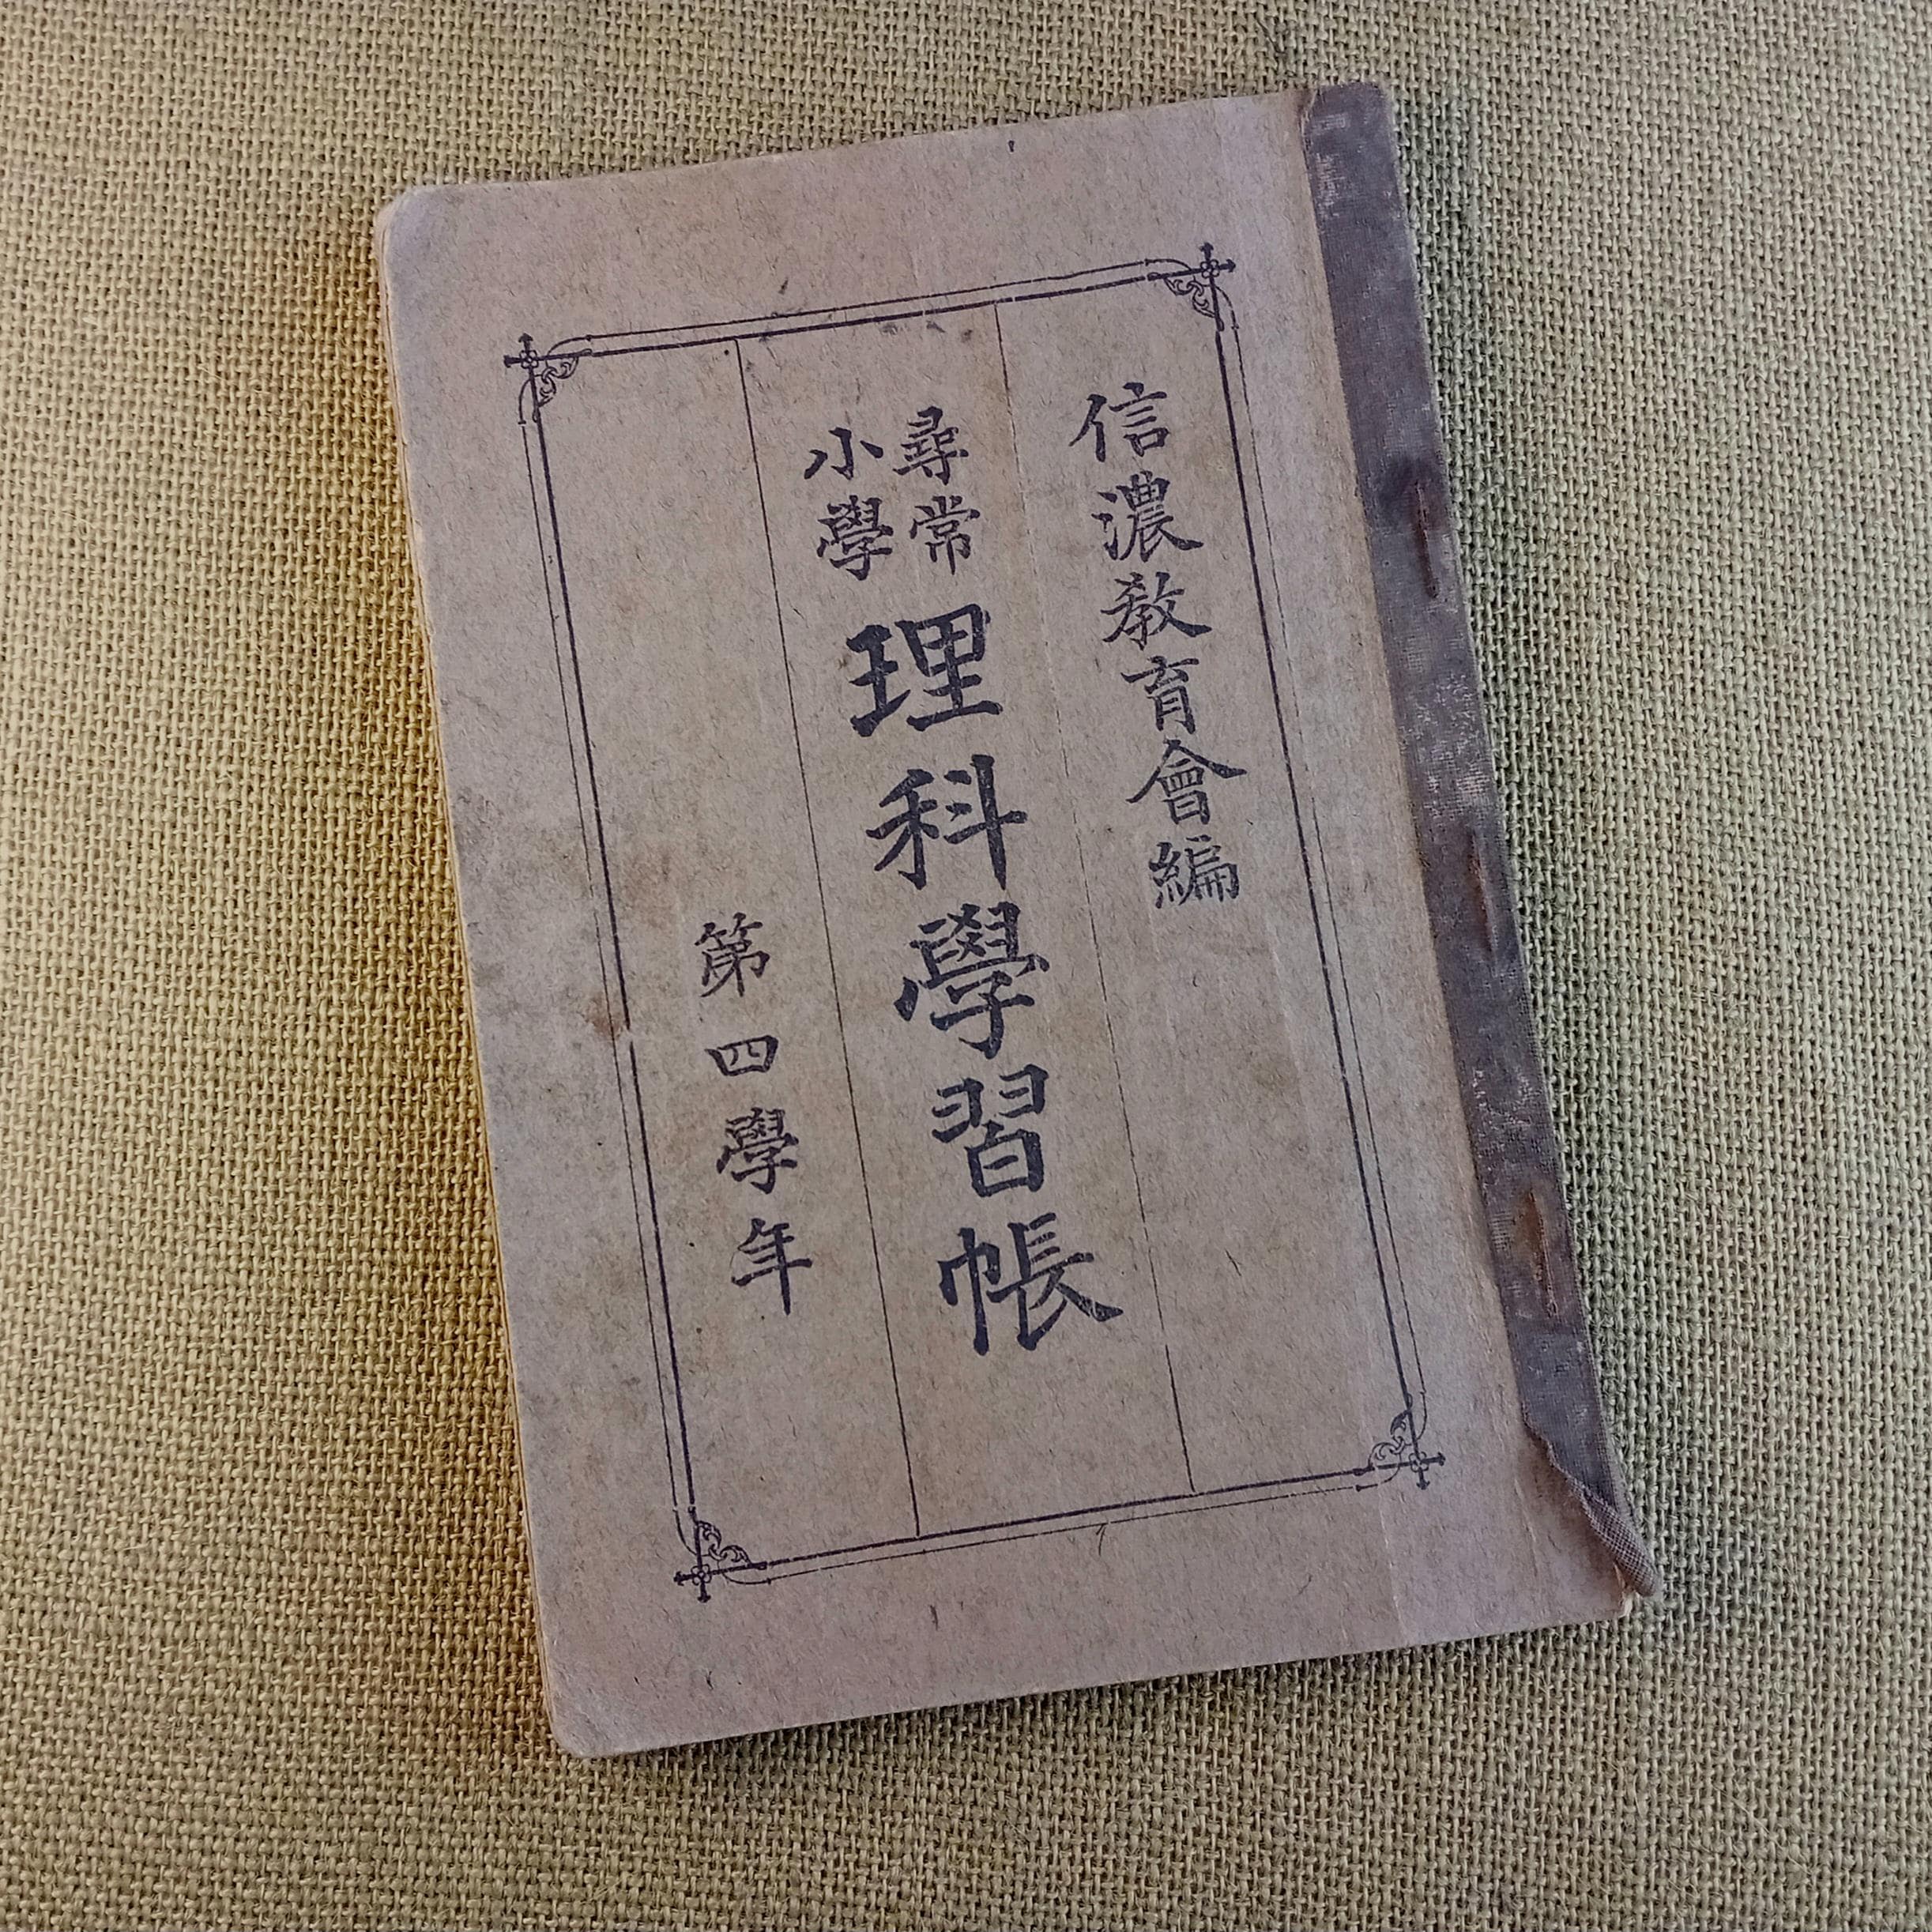 信濃教育會編
尋常
小學
理科學習帳
第四學年